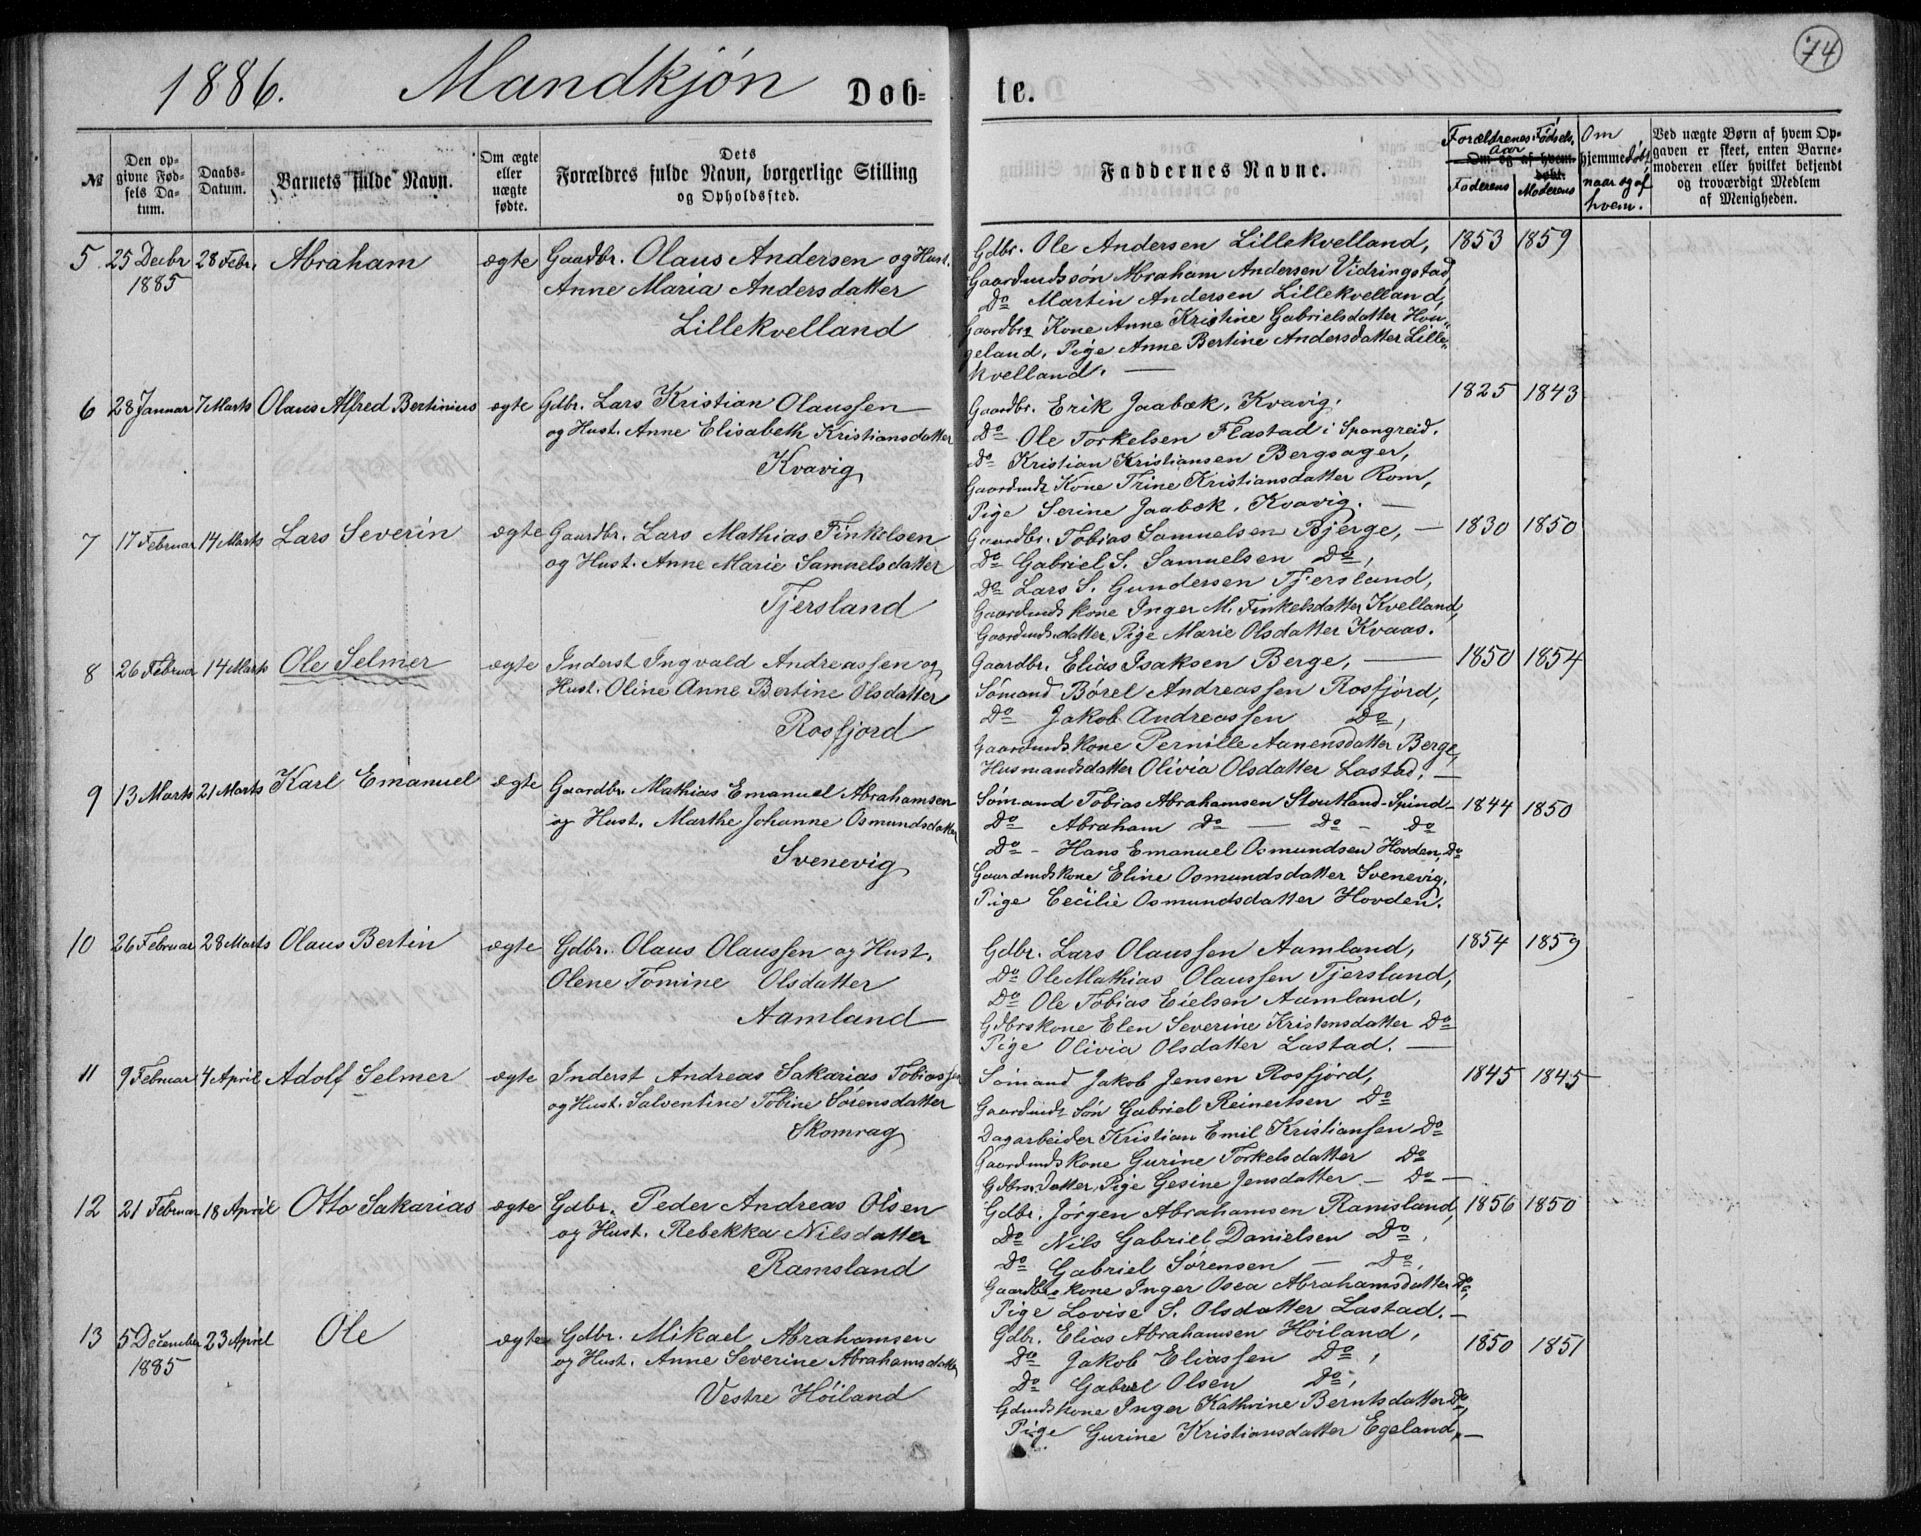 74
1886. Mandkjøn Døb-te.
№
Den opgivne Fødsels Datum.
Daabs-Datum.
Barnets fulde Navn.
Om ægte eller uægte fødte.
Dets Forældres fulde Navn, borgerlige Stilling og Opholdssted.
Faddernes Navne.
Forældrenes Fødselsaar
Om og af hvem døbt.
Faderens Moderens
Om hjemmedøbt, naar og af hvem.
Ved uægte Børn af hvem Opgaven er skeet, enten Barnemoderen eller hvilket bekjendt og troværdigt Medlem af Menigheden.
5 25 Decbr 28 Febr. Abraham ægte Gaardbr. Olaus Andersen og Hust.
1885 Anne Maria Andersdatter
Lillekvelland
Gdbr. Ole Andersen Lillekvelland, 1853 1859
Gaardmdssøn Abraham Andersen Vidringstad,
Do Martin Andersen Lillekvelland,
Gaardbrs Kone Anne Kristine Gabrielsdatter Hou-
geland, Pige Anne Bertine Andersdatter Lille-
kvelland. —
6 28 Januar 7 Marts Olaus Alfred Bertinius ægte Gdbr. Lars Kristian Olaussen
og Hust. Anne Elisabeth Kristiansdatter
Kvavig
Gaardbr. Erik Jaabæk, Kvavig. 1825 1843
Do Ole Torkelsen Flastad i Spangreid.
Do Kristian Kristiansen Bergsager,
Gaardmds Kone Trine Kristiansdatter Rom,
Pige Serine Jaabæk, Kvavig. —
7 17 Februar 14 Marts Lars Severin ægte Gaardbr. Lars Mathias Finkelsen
og Hust. Anne Marie Samuelsdatter
Tjersland
Gaardbr. Tobias Samuelsen Bjerge, — 1830 1850
Do Gabriel S. Samuelsen Do,
Do Lars S. Gundersen Tjersland,
Gaardmds kone Inger M. Finkelsdatter Kvelland,
Gaardmds datter, Pige Marie Olsdatter Kvaas.
8 26 Februar 14 Marts Ole Selmer ægte Inderst Ingvald Andreassen og
Hust. Oline Anne Bertine Olsdatter
Rosfjord
Gaardbr. Elias Isaksen Berge, — 1850 1854
Sømand Børel Andreassen Rosfjord,
Do Jakob Andreassen Do,
Gaardmds kone Pernille Aanensdatter Berge,
Husmandsdatter Olivia Olsdatter Lastad. —
9 13 Marts 21 Marts Karl Emanuel ægte Gaardbr. Mathias Emanuel Abrahamsen
og Hust. Marthe Johanne Osmundsdatter
Svenevig
Sømand Tobias Abrahamsen Stoutland - Spind - 1844 1850
Do Abraham Do — Do - Do
Do - Hans Emanuel Osmundsen Hovden, Do
Gaardmdskone Eline Osmundsdatter Svenevig,
Pige Cecilie Osmundsdatter Hovden.
10 26 Februar 28 Marts Olaus Bertin ægte Gdbr. Olaus Olaussen og Hust.
Olene Tomine Olsdatter
Aamland
Gdbr. Lars Olaussen Aamland, 1854 1859
Do Ole Mathias Olaussen Tjersland,
Do Ole Tobias Eielsen Aamland,
Gdbrskone Elen Severine Kristensdatter Do
Pige Olivia Olsdatter Lastad. —
11 9 Februar 4 April Adolf Selmer ægte Inderst Andreas Sakarias Tobiassen
og Hust. Salventine Tobine Sørensdatter
Skomrag
Sømand Jakob Jensen Rosfjord, 1845 1845
Gaardmds Søn Gabriel Reinertsen Do
Dagarbeider Kristian Emil Kristiansen Do
Gaardmds kone Gurine Torkelsdatter Do
Gdbrs. datter, Pige Gesine Jensdatter — Do —
12 21 Februar 18 April Otto Sakarias ægte Gdbr. Peder Andreas Olsen
og Hust. Rebekka Nilsdatter
Ramsland
Gdbr. Jørgen Abrahamsen Ramsland, 1856 1850
Do Nils Gabriel Danielsen Do,
Do Gabriel Sørensen — Do,
Gaardbrs kone Inger Osea Abrahamsdatter Do,
Pige Lovise S. Olsdatter Lastad. —
13 5 December 23 April Ole ægte Gdbr. Mikael Abrahamsen
1885 og Hust. Anne Severine Abrahamsdatter
Vestre Høiland
Gdbr. Elias Abrahamsen Høiland, 1850 1851
Do Jakob Eliassen Do,
Do Gabriel Olsen Do,
Gdmds kone Inger Kathrine Berntsdatter Do,
Pige Gurine Kristiansdatter Egeland, —